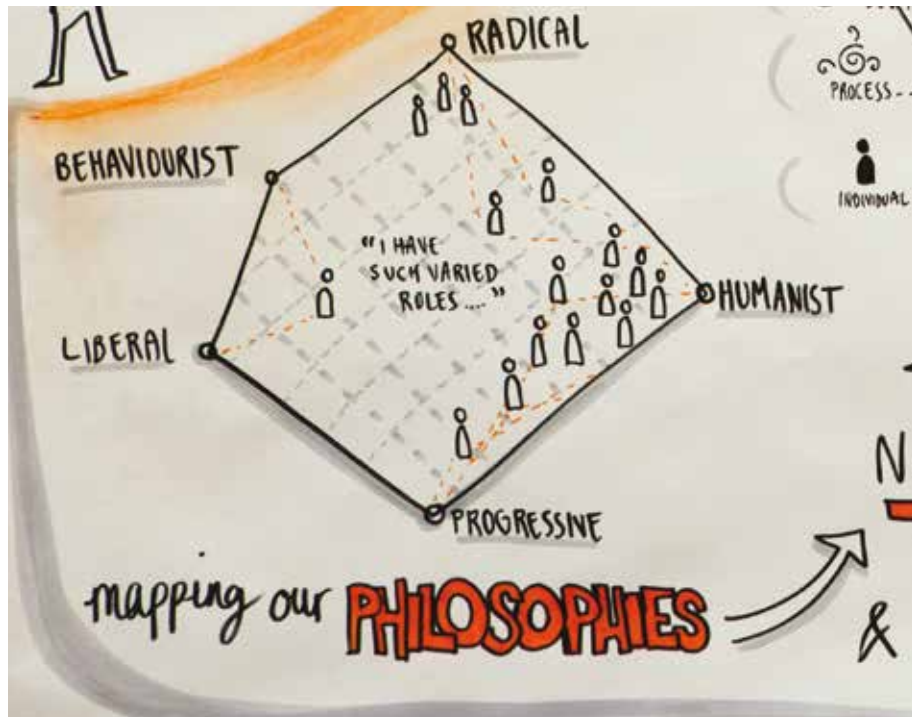 RADICAL
PROCESS...
BEHAVIOURIST
INDIVIDUAL
"I HAVE
SUCH VARIED
ROLES ...."
HUMANIST
LIBERAL
PROGRESSIVE
N
mapping our PHILOSOPHIES
&